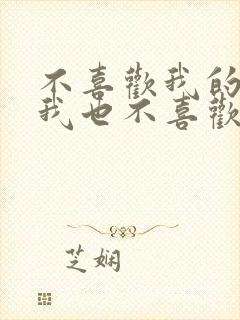 不喜歡我的
我也不喜歡
芝娴